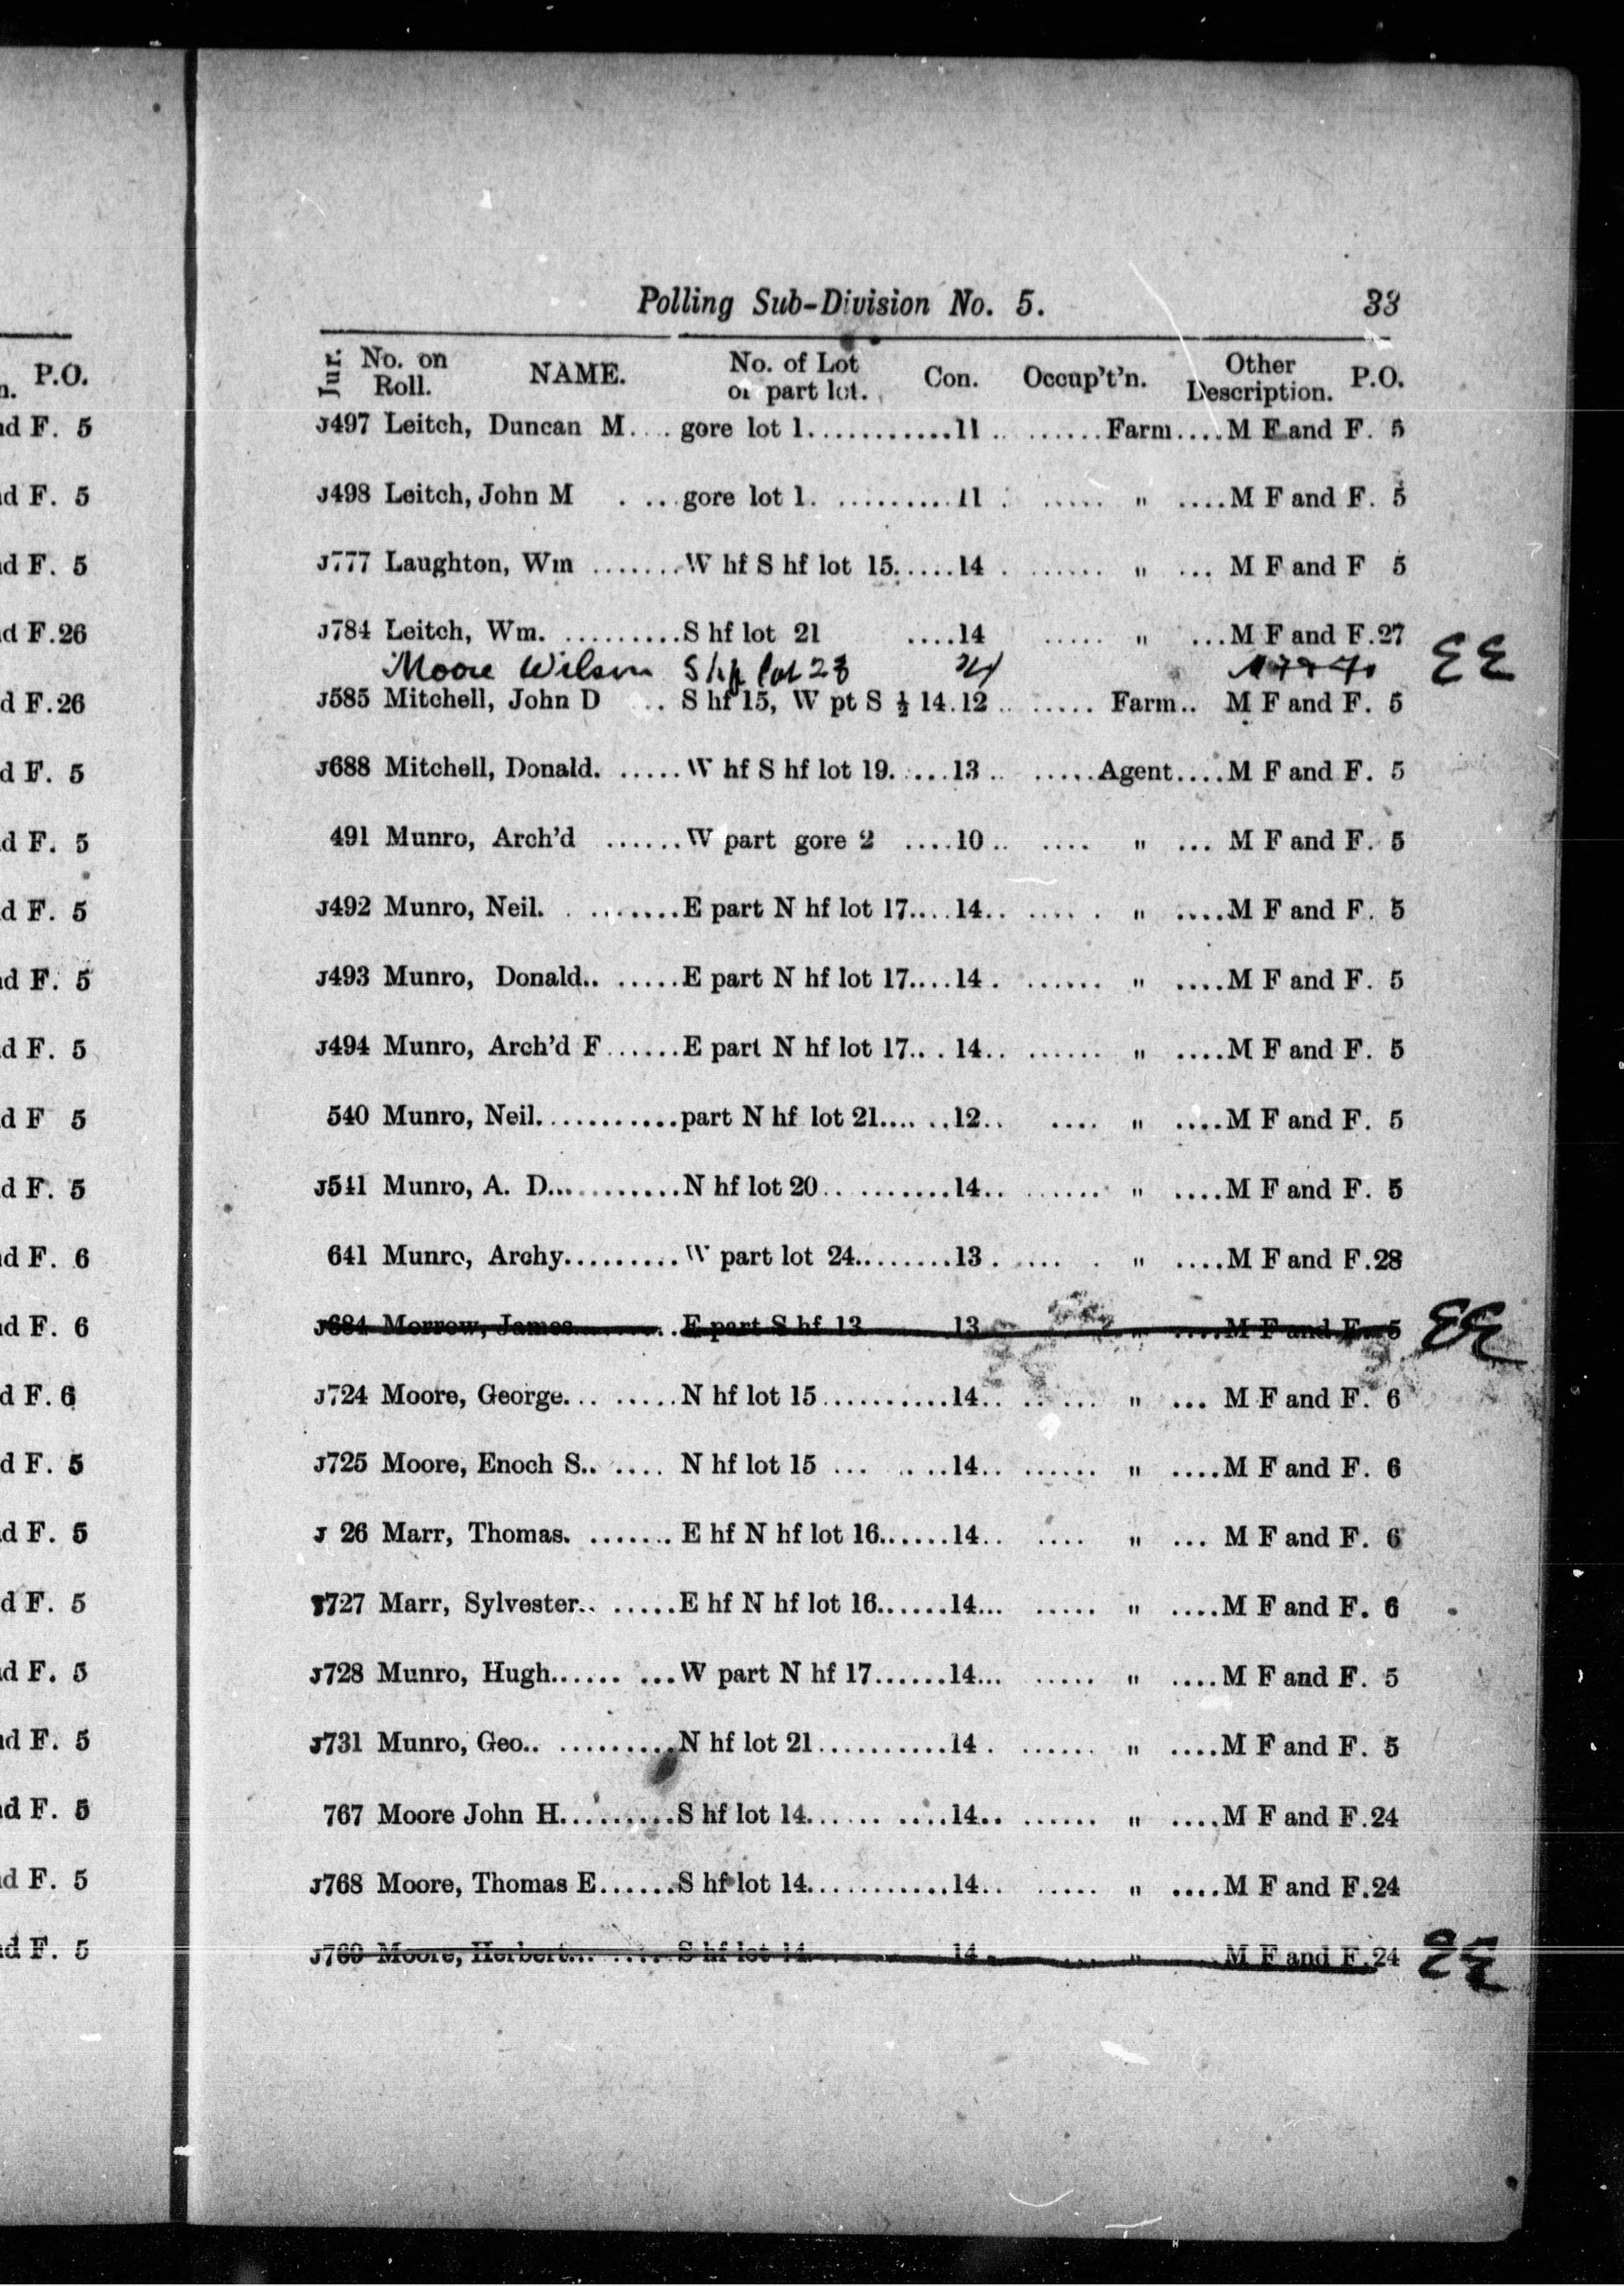 Polling Sub-Division No. 5. 33
Jur. No. on Roll. NAME. No. of Lot or part lot. Con. Occup't'n. Other Description. P.O.
J497 Leitch, Duncan M.... gore lot 1............11 .. .......Farm....M F and F. 5
J498 Leitch, John M . ... gore lot 1. ..........11 . ..... " ....M F and F. 5
J777 Laughton, Wm .......W hf S hf lot 15......14 . ...... " ... M F and F 5
J784 Leitch, Wm. ..........S hf lot 21 ....14 ..... " ...M F and F.27
Moore Wilson S hf lot 23 14 EE
J585 Mitchell, John D .. S hf 15, W pt S ½ 14.12 .. ...... Farm.. M F and F. 5
J688 Mitchell, Donald. ......W hf S hf lot 19. ....13 .. .....Agent....M F and F. 5
491 Munro, Arch'd ......W part gore 2 ....10.. .... " ... M F and F. 5
J492 Munro, Neil. . .......E part N hf lot 17....14.. ..... . " ....M F and F. 5
J493 Munro, Donald.. ......E part N hf lot 17....14 . ...... " ....M F and F. 5
J494 Munro, Arch'd F......E part N hf lot 17.. . 14.. ...... " ....M F and F. 5
540 Munro, Neil............part N hf lot 21.... ..12.. .... " ....M F and F. 5
J541 Munro, A. D............N hf lot 20.. .........14.. ....... " ....M F and F. 5
641 Munro, Archy..........W part lot 24.........13 . .... . " ....M F and F.28
J684 Morrow, James......... ..E part S hf 13 13 " ....M F and F. 5 EE
J724 Moore, George... ......N hf lot 15...........14.. .. ... " ... M F and F. 6
J725 Moore, Enoch S.. .... N hf lot 15 ... . ..14.. ...... " ....M F and F. 6
J 26 Marr, Thomas. ....... E hf N hf lot 16......14.. .... " ... M F and F. 6
J727 Marr, Sylvester.. ......E hf N hf lot 16......14... ..... " ....M F and F. 6
J728 Munro, Hugh...... ...W part N hf 17......14... ...... " ....M F and F. 5
J731 Munro, Geo.. ..........N hf lot 21...........14 . ...... " ....M F and F. 5
767 Moore John H..........S hf lot 14...... ....14.. ...... " ....M F and F.24
J768 Moore, Thomas E......S hf lot 14............14.. ..... " ....M F and F.24
J769 Moore, Herbert... .....S hf lot 14 14 " M F and F.24 EE
P.O.
d F. 5
d F. 5
d F. 5
d F.26
d F.26
d F. 5
d F. 5
d F. 5
d F. 5
d F. 5
d F 5
d F. 5
d F. 6
d F. 6
d F. 6
d F. 5
d F. 5
d F. 5
d F. 5
d F. 5
d F. 5
d F. 5
d F. 5